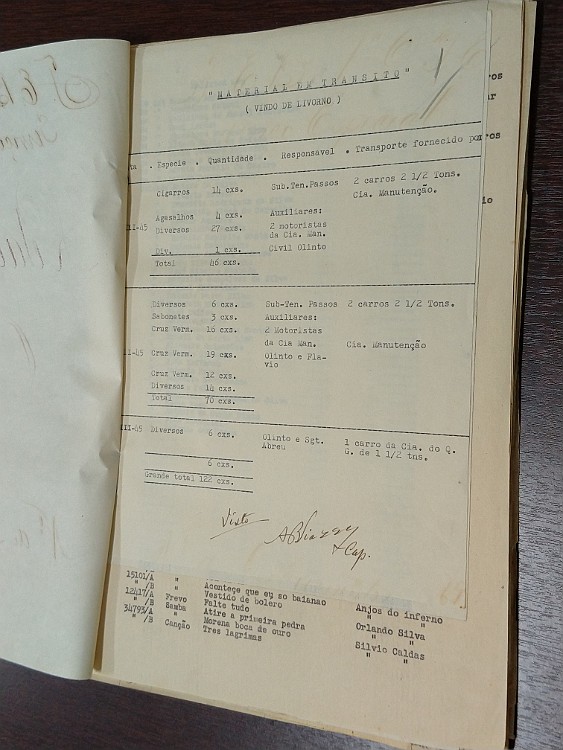 " MATERIAL EM TRANSITO "
( VINDO DE LIVORNO )
ta . Especie . Quantidade . Responsavel . Transporte fornecido por
Cigarros 14 cxs. Sub.Ten.Passos 2 carros 2 1/2 Tons.
Cia. Manutenção.
Agasalhos 4 cxs. Auxiliares:
II-45 Diversos 27 cxs. 2 motoristas
da Cia. Man.
Div. 1 cxs. Civil Olinto
Total 46 cxs.
Diversos 6 cxs. Sub-Ten. Passos 2 carros 2 1/2 Tons.
Sabonetes 3 cxs. Auxiliares:
Cruz Verm. 16 cxs. 2 Motoristas
da Cia Man. Cia. Manutenção
II-45 Cruz Verm. 19 cxs. Olinto e Fla-
vio
Cruz Verm. 12 cxs.
Diversos 14 cxs.
Total 70 cxs.
III-45 Diversos 6 cxs. Olinto e Sgt. 1 carro da Cia. do Q.
Abreu G. de 1 1/2 tns.
6 cxs.
Grande total 122 cxs.
Visto
Cap.
15101/A " Aconteçe que eu so baianao Anjos do inferno
" /B " Vestido de bolero " "
12417/A Frevo Falte tudo Orlando Silva
" /B Samba Atire a primeira pedra " "
34793/A " Morena boca de ouro Silvio Caldas
" /B Canção Tres lagrimas " "